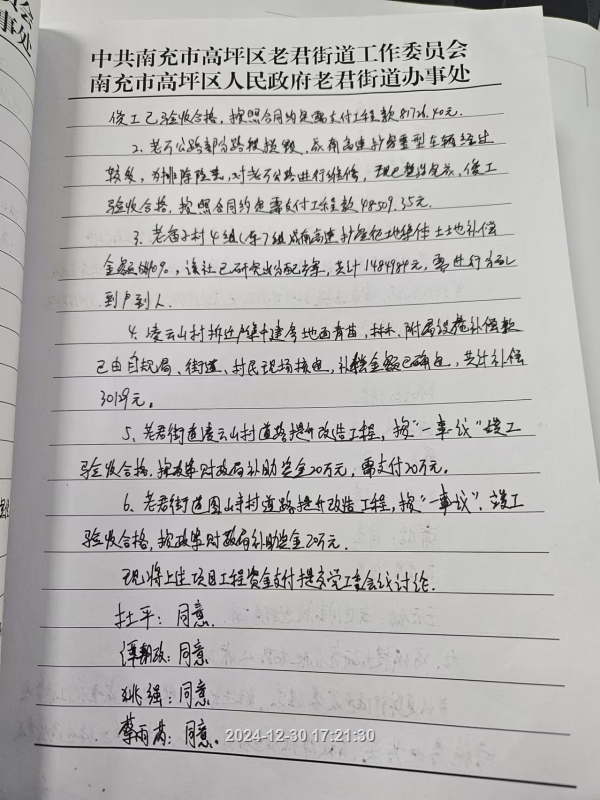 中共南充市高坪区老君街道工作委员会
南充市高坪区人民政府老君街道办事处
竣工已验收合格,按照合同约定需支付工程款81726.40元。
2、老石公路部分路段损毁,成南高速扩容重型车辆经过
较多,为排除隐患,对老石公路进行维修,现已整治完成,竣工
验收合格,按照合同约定需支付工程款48509.35元。
3、老君村4组(原7组)成南高速扩容征地集体土地补偿
金额的40%,该社已研究出分配方案,共计148498元,需进行分配
到户到人。
4、凌云山村拆迁户集中建房地面青苗、林木、附属设施补偿款
已由自规局、街道、村民现场核定,补偿金额已确定,共计补偿
30129元。
5、老君街道凌云山村道路提升改造工程,按"一事一议"竣工
验收合格,按政策财政局补助资金20万元,需支付20万元。
6、老君街道图山寺村道路提升改造工程,按"一事一议",竣工
验收合格,按政策财政局补助资金20万元。
现将上述项目工程资金支付提交党工委会议讨论。
杜平:同意。
谭朝政:同意
姚强:同意
蔡雨芮:同意。
2024-12-30 17:21:30